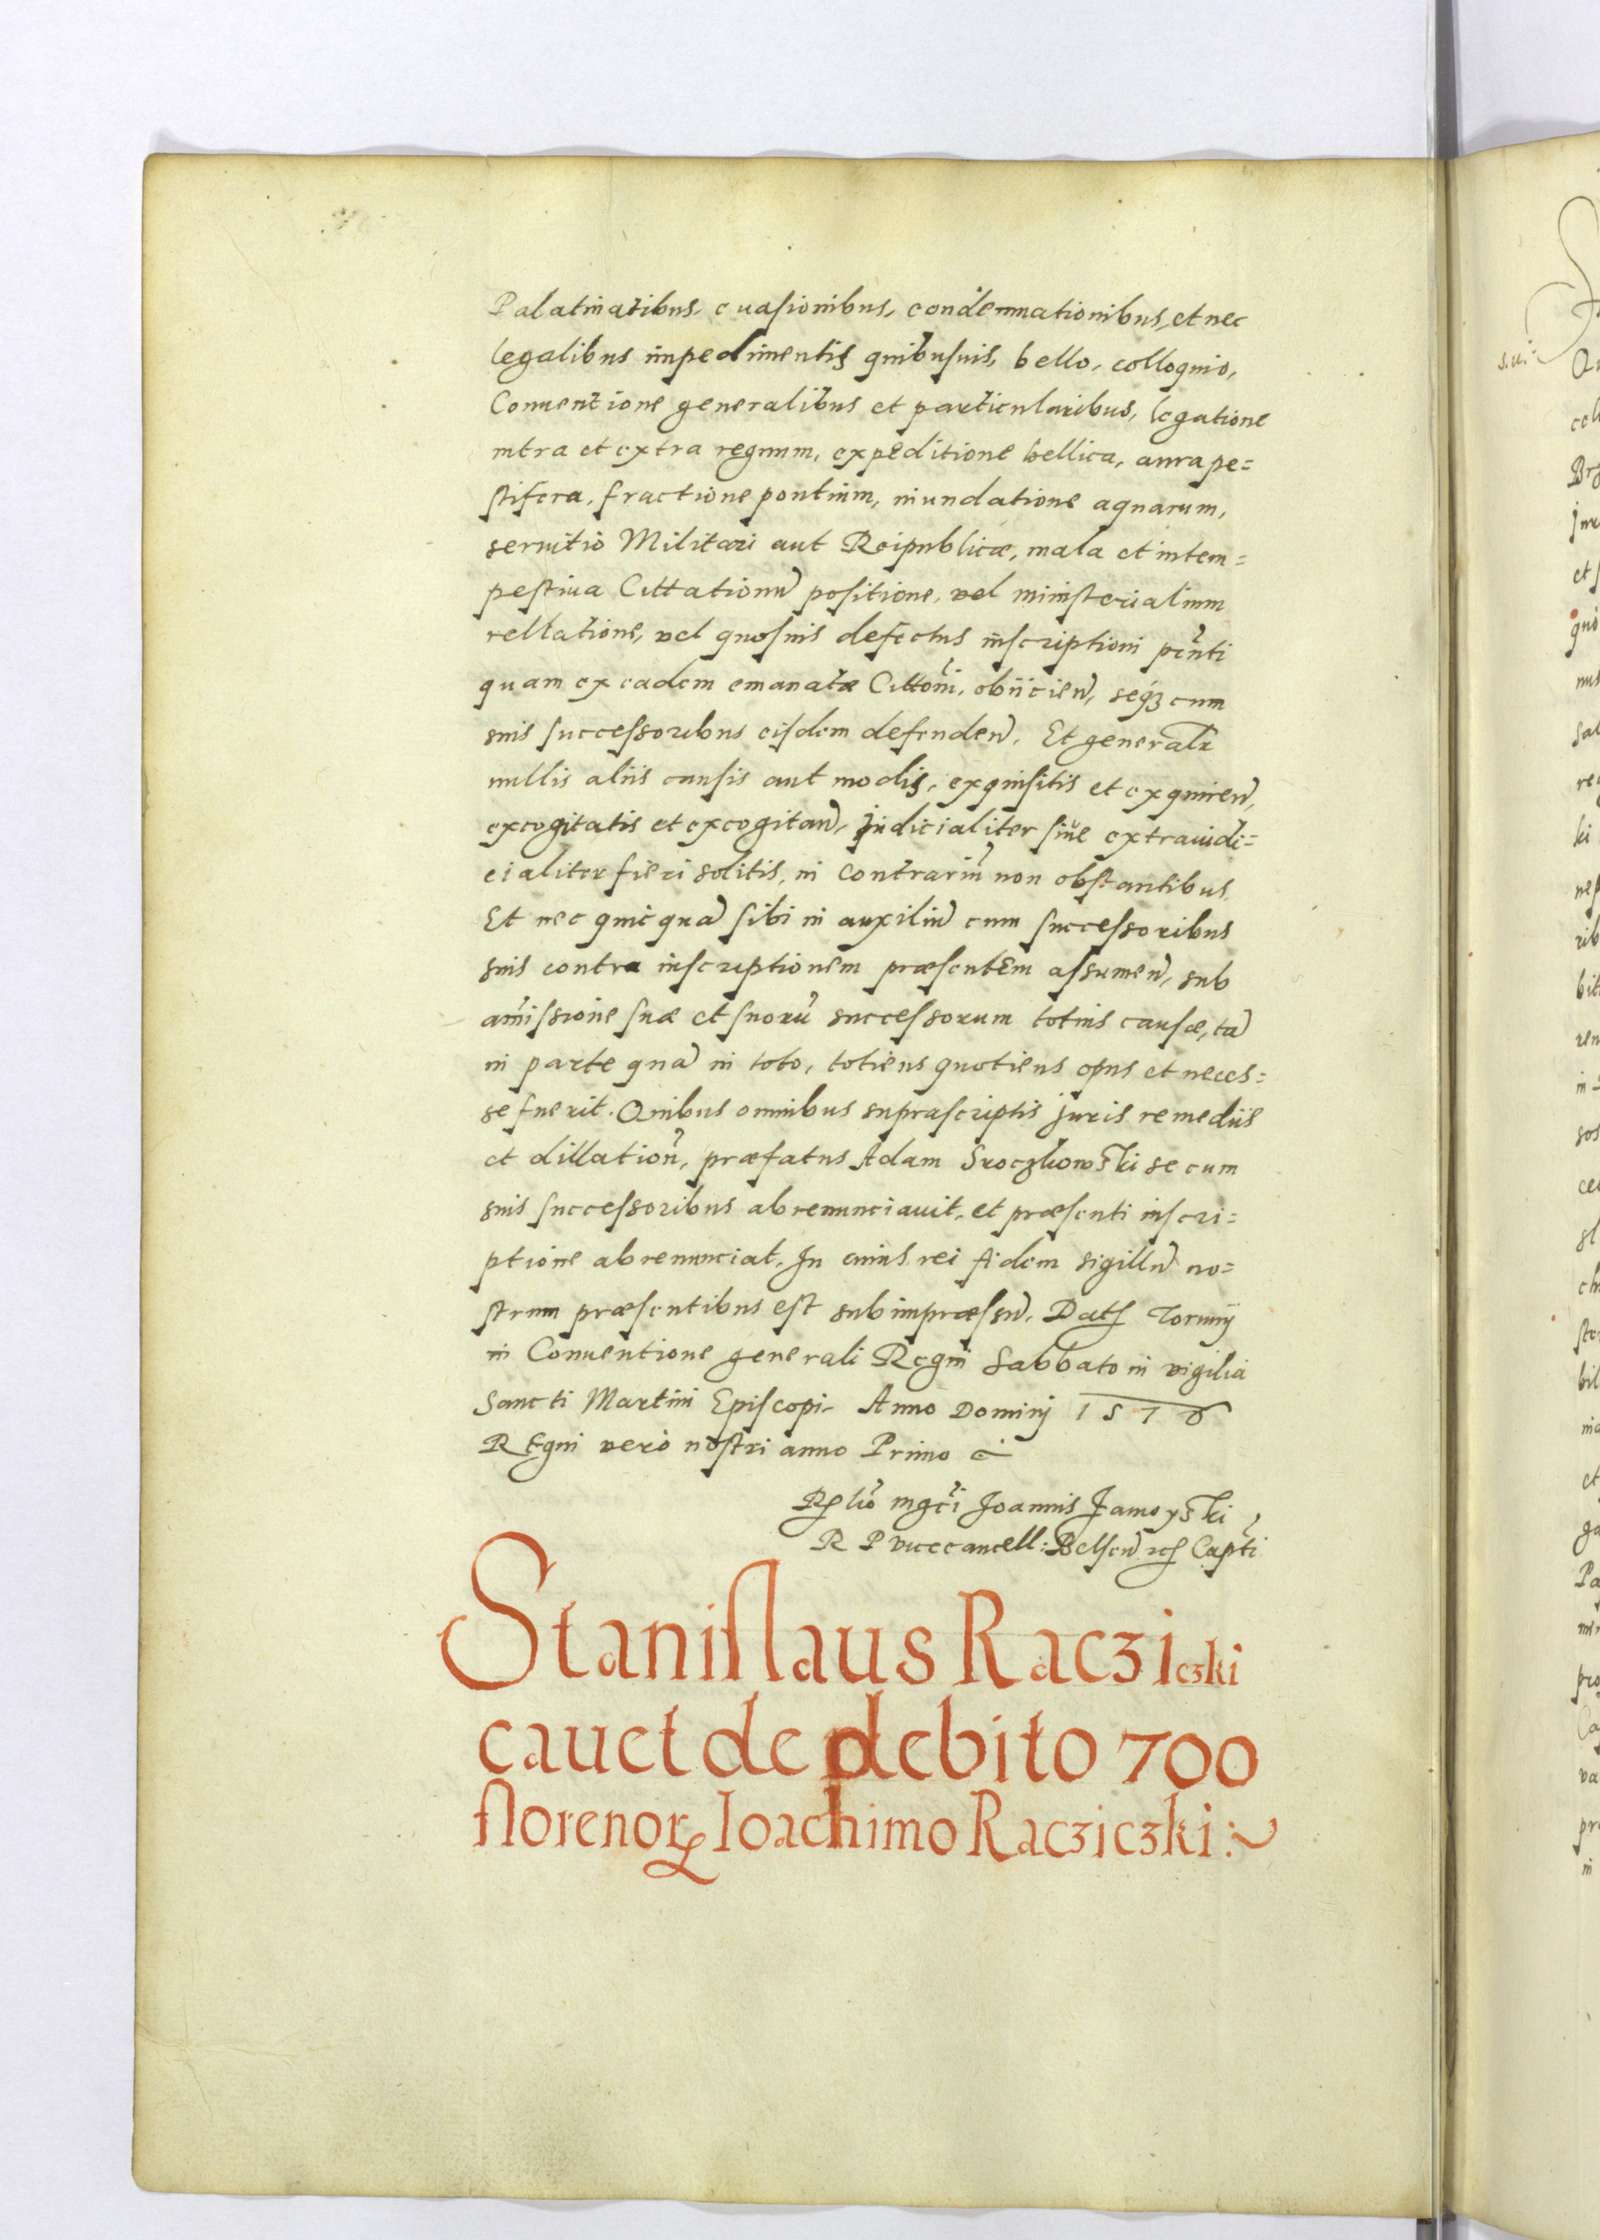 Palatinatibus, euasionibus, condemnationibus, et nec
legalibus impedimentis quibusuis, bello, colloquio,
Conuentione generalibus et particularibus, legatione
intra et extra regnum, expeditione bellica, aura pe=
stifera, fractione pontium, inundatione aquarum,
seruitio Militari aut Reipublicæ, mala et intem=
pestiua Cittationũ positione, vel ministerialium
rellatione, vel quosuis defectus inscriptioni pñti
quam ex eadem emanatæ Cittoñi, obiicieñ, seq₃ cum
suis successoribus eisdem defendeñ. Et generalr
nullis aliis causis aut modis, exquisitis et exquireñ,
excogitatis et excogitañ, Judicialiter siue extraiudi=
cialiter fieri solitis, in contrariũ non obstantibus.
Et nec quicquã sibi in auxiliũ cum successoribus
suis contra inscriptionem præsentem assumeñ, sub
amissione suæ et suorũ successorum totius causæ, tã
in parte quã in toto, totiens quotiens opus et neces=
se fuerit. Quibus omnibus suprascriptis juris remediis
et dillationũ, præfatus Adam Sroczkowski se cum
suis successoribus abrenunciauit, et præsenti inscri=
ptione abrenunciat, In cuius rei fidem sigillũ no=
strum præsentibus est subimpræssũ. Dat Torunij
in Conuentione generali Regni Sabbato in vigilia
Sancti Martini Episcopi. Anno Dominj 1576
Regni vero nostri anno Primo
Rlo mgci Joannis Zamoyski
R P vicecancell: Belseñ Capti
Stanislaus Racziczki
cauet de debito 700
florenoꝝ Ioachimo Racziczki:
s.ui: